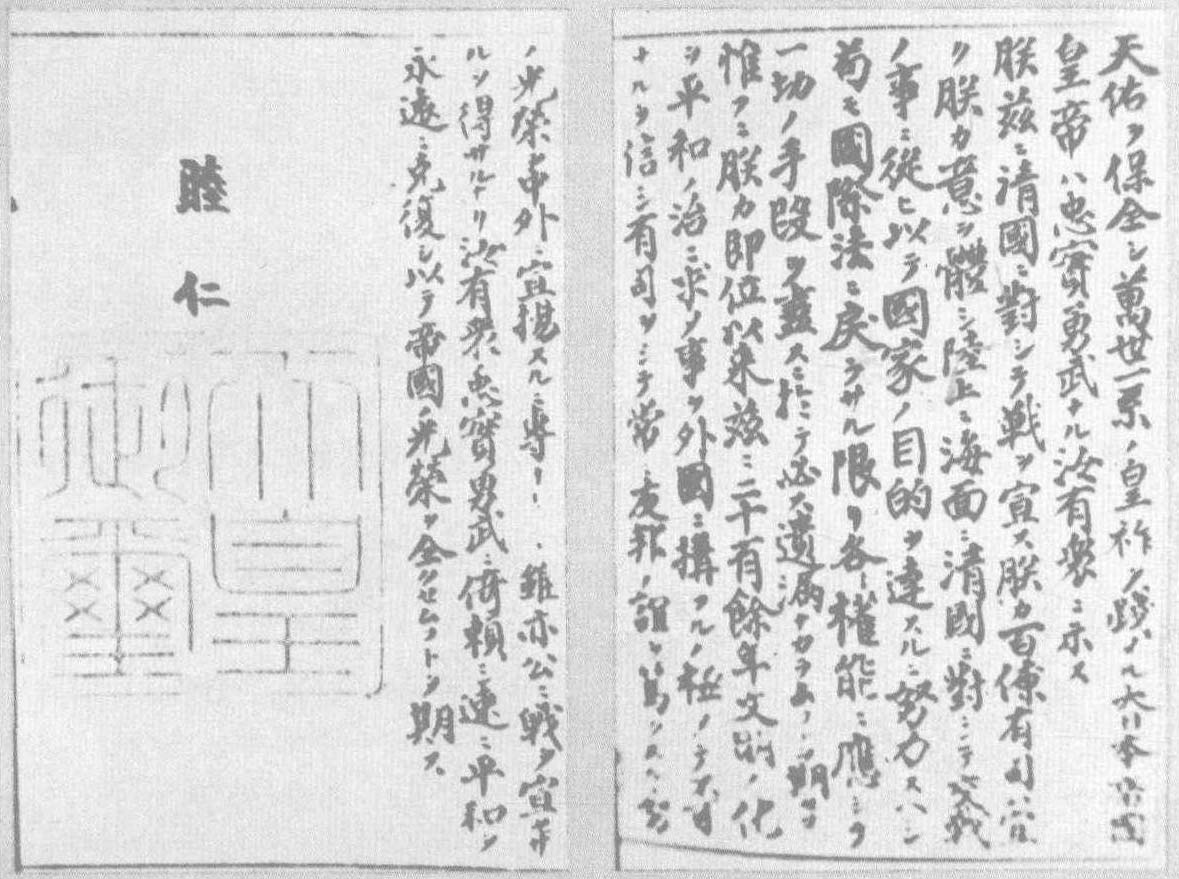 天佑ヲ保全シ萬世一系ノ皇祚ヲ踐メル大日本帝國
皇帝ハ忠實勇武ナル汝有衆ニ示ス
朕茲ニ清國ニ對シテ戰ヲ宣ス朕カ百僚有司ハ宜
ク朕カ意ヲ體シ陸上ニ海面ニ清國ニ對シテ交戰
ノ事ニ從ヒ以テ國家ノ目的ヲ達スルニ努力スヘシ
苟モ國際法ニ戾ラサル限リ各〻權能ニ應シテ
一切ノ手段ヲ盡スニ於テ必ス遺漏ナカラムコトヲ期セヨ
惟フニ朕カ即位以来茲ニ二十有餘年文明ノ化
ヲ平和ノ治ニ求メ事ヲ外國ニ構フルノ極メテ不可
ナルヲ信シ有司ヲシテ常ニ友邦ノ誼ヲ篤クスルニ努
ノ光榮ヲ中外ニ宣揚スルニ專
雖亦公ニ戰ヲ宣セサ
ルヲ得サルナリ汝有衆ノ忠實勇武ニ倚賴シ速ニ平和ヲ
永遠ニ克復シ以テ帝國ノ光榮ヲ全クセムコトヲ期ス
睦仁
天皇
御璽